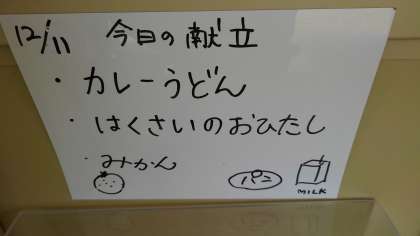 12/11 今日の献立
・カレーうどん
・はくさいのおひたし
・みかん
パン
MILK